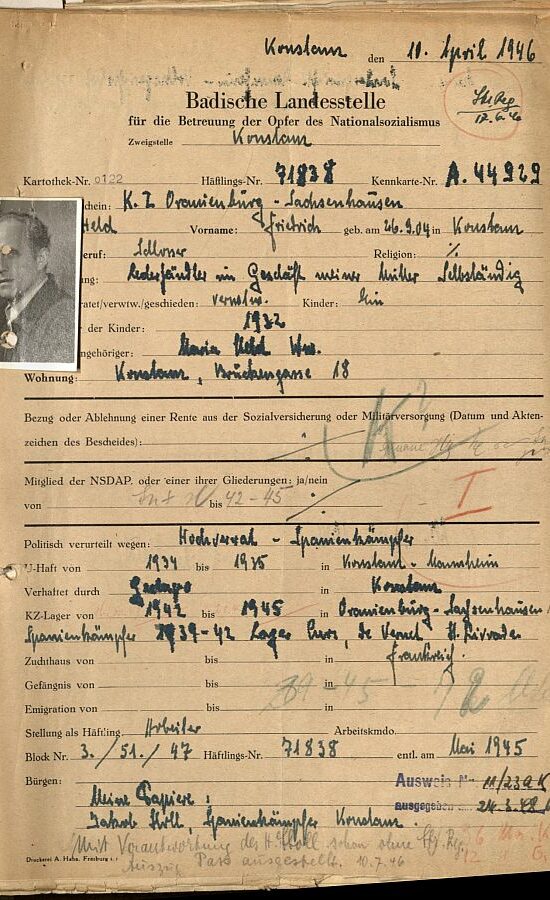 Konstanz den 10. April 1946
Badische Landesstelle
für die Betreuung der Opfer des Nationalsozialismus
Zweigstelle Konstanz
Kartothek-Nr. 0122 Häftlings-Nr. 71838 Kennkarte-Nr. A. 44929
chein: K.Z Oranienburg - Sachsenhausen
Held Vorname: Friedrich geb. am 26.9.04 in Konstanz
eruf: Schlosser Religion: %
ng: Lederhändler im Geschäft meiner Mutter Selbständig
ratet/verwtw./geschieden: verwitw. Kinder: Ein
der Kinder: 1932
ngehöriger: Maria Held Ww.
Wohnung: Konstanz, Brückengasse 18
Bezug oder Ablehnung einer Rente aus der Sozialversicherung oder Militärversorgung (Datum und Akten-
zeichen des Bescheides):
K?
Mitglied der NSDAP. oder einer ihrer Gliederungen: ja/nein
von bis 42-45
I
Politisch verurteilt wegen: Hochverrat - Spanienkämpfer
U-Haft von 1934 bis 1935 in Konstanz - Mannheim
Verhaftet durch Gestapo in Konstanz
KZ-Lager von 1942 bis 1945 in Oranienburg-Sachsenhausen
Spanienkämpfer 1939-42 Lager Gurs, de Vernet St.
Zuchthaus von bis in Frankreich.
Gefängnis von bis in
39-45
Emigration von bis in
Stellung als Häftling Arbeiter Arbeitskmdo.
Block Nr. 3./51./47 Häftlings-Nr. 71838 entl. am Mai 1945
Bürgen:
Ausweis N- 11/239K
ausgegeben 24.3.48
Meine Papiere:
Jakob Moll, Spanienkämpfer Konstanz.
Mit Verantwortung des H. Moll schon ohne
Auszug Pass ausgestellt. 10.7.46
Druckerei A. Hahn, Freiburg i. Br.